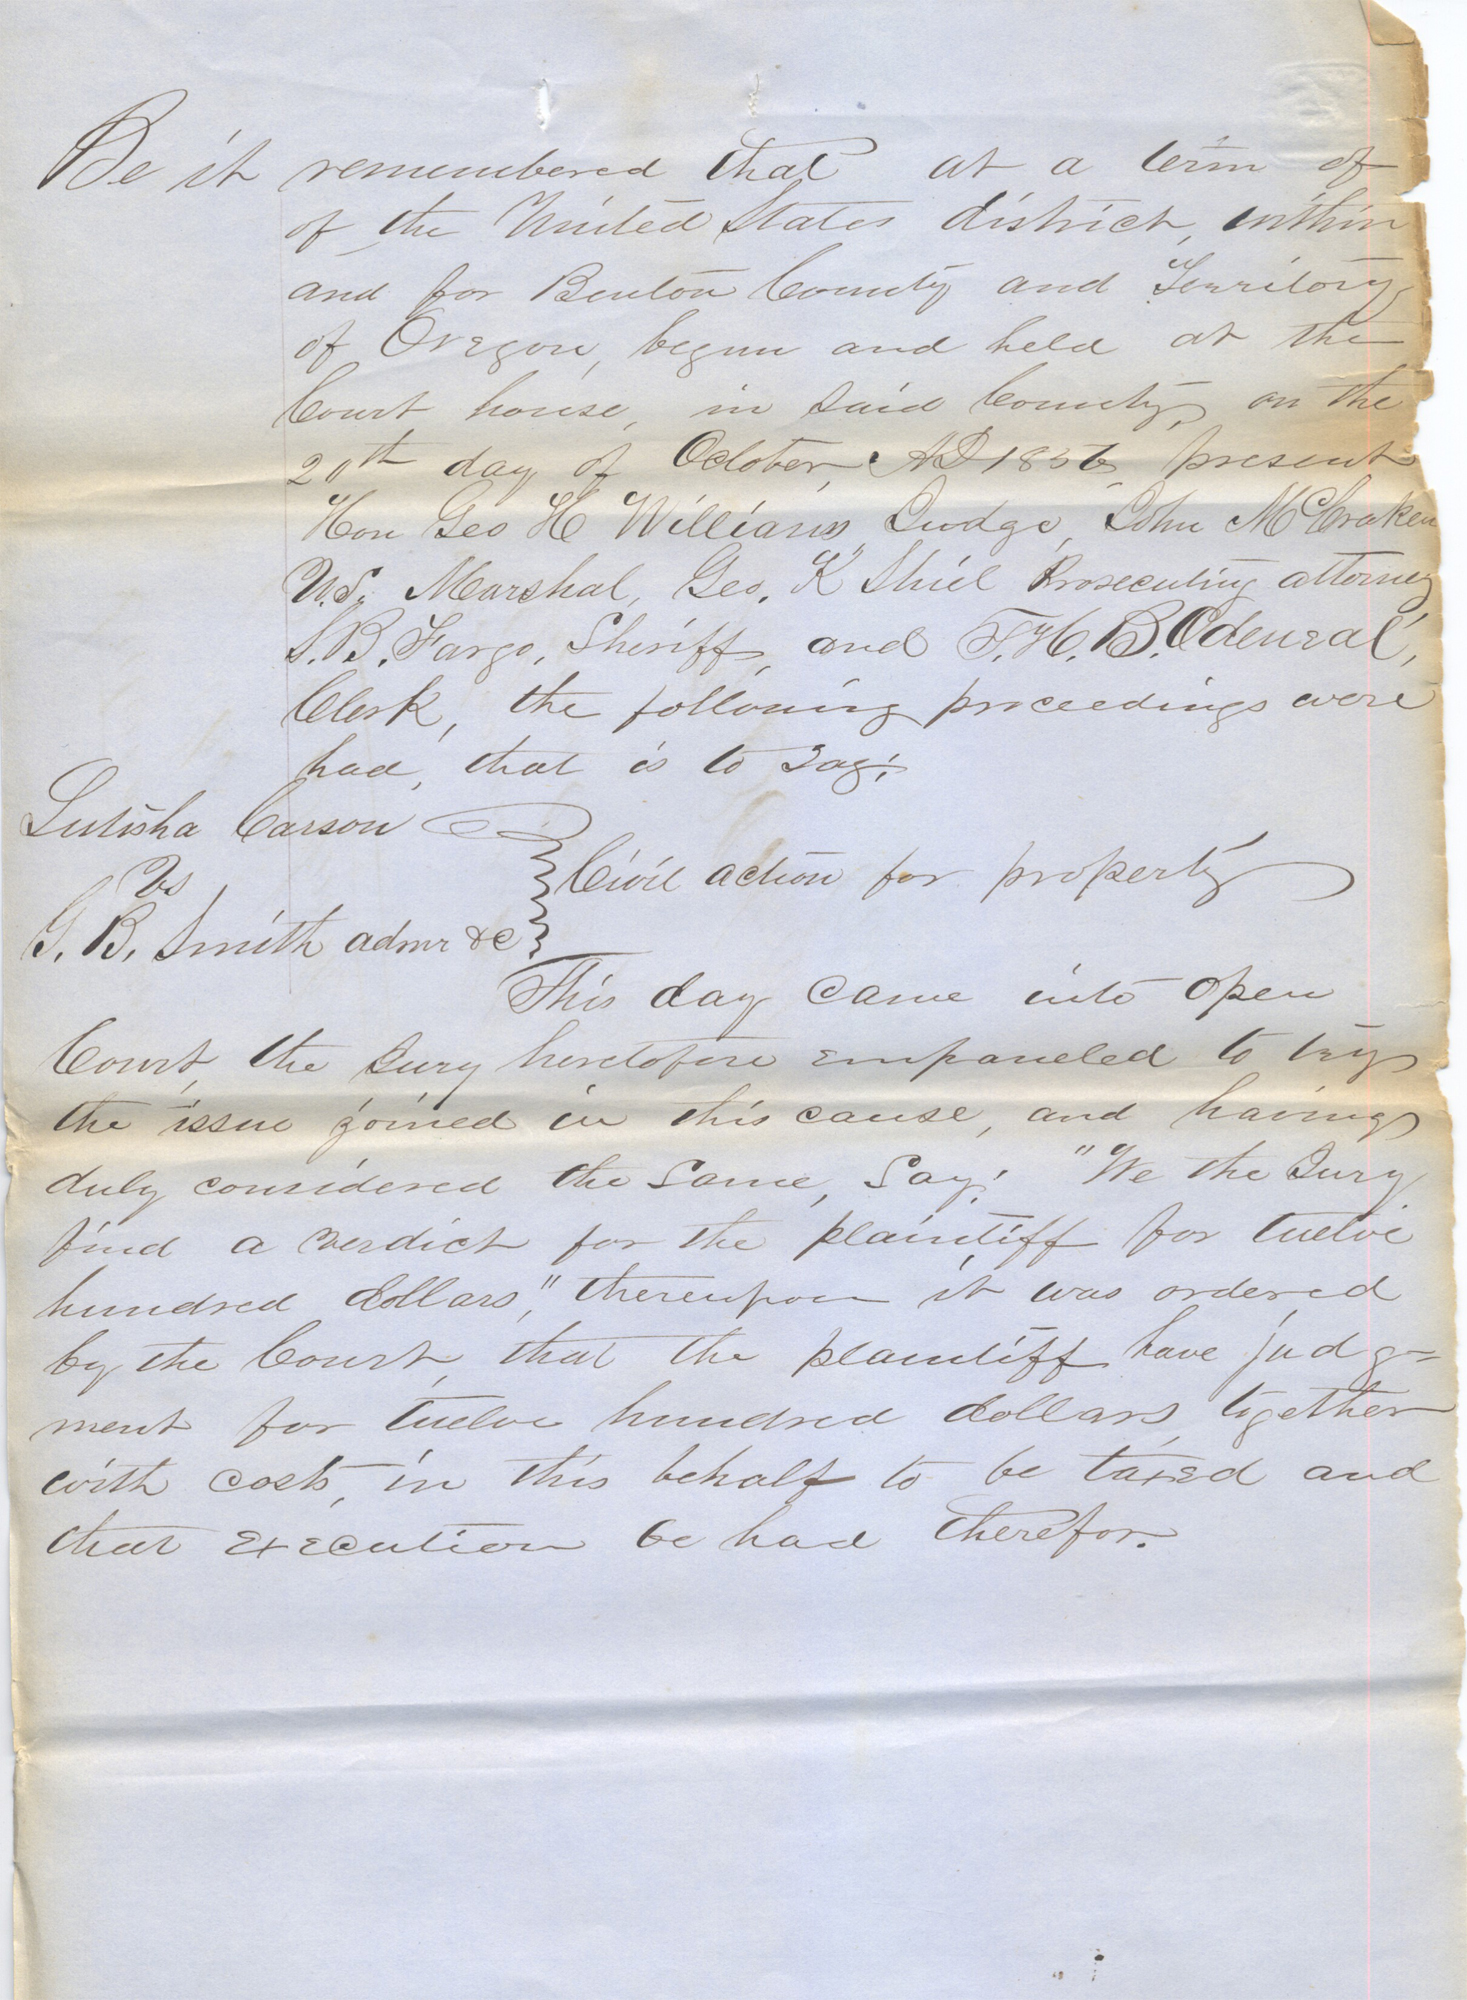 Be it remembered that at a term of
of the United States district, within
and for Benton County and Territory
of Oregon, begun and held at the
Court house, in said County, on the
20th day of October, AD 1856 present
Hon Geo H Williams, Judge, John McCraken
U.S. Marshal, Geo. K Shiel Prosecuting attorney
S.B. Fargo, Sheriff, and T.H.B. Odeneal,
Clerk, the following proceedings were
had, that is to say;
Lutisha Carson
vs
G. B. Smith admr &c
Civil action for property
This day came into open
Court, the Jury heretofore empaneled to try
the issue joined in this cause, and having
duly considered the same, say: "We the Jury
find a verdict for the plaintiff for twelve
hundred dollars," thereupon it was ordered
by the Court, that the plaintiff have judg=
ment for twelve hundred dollars, together
with costs, in this behalf to be taxed and
that execution be had therefor.